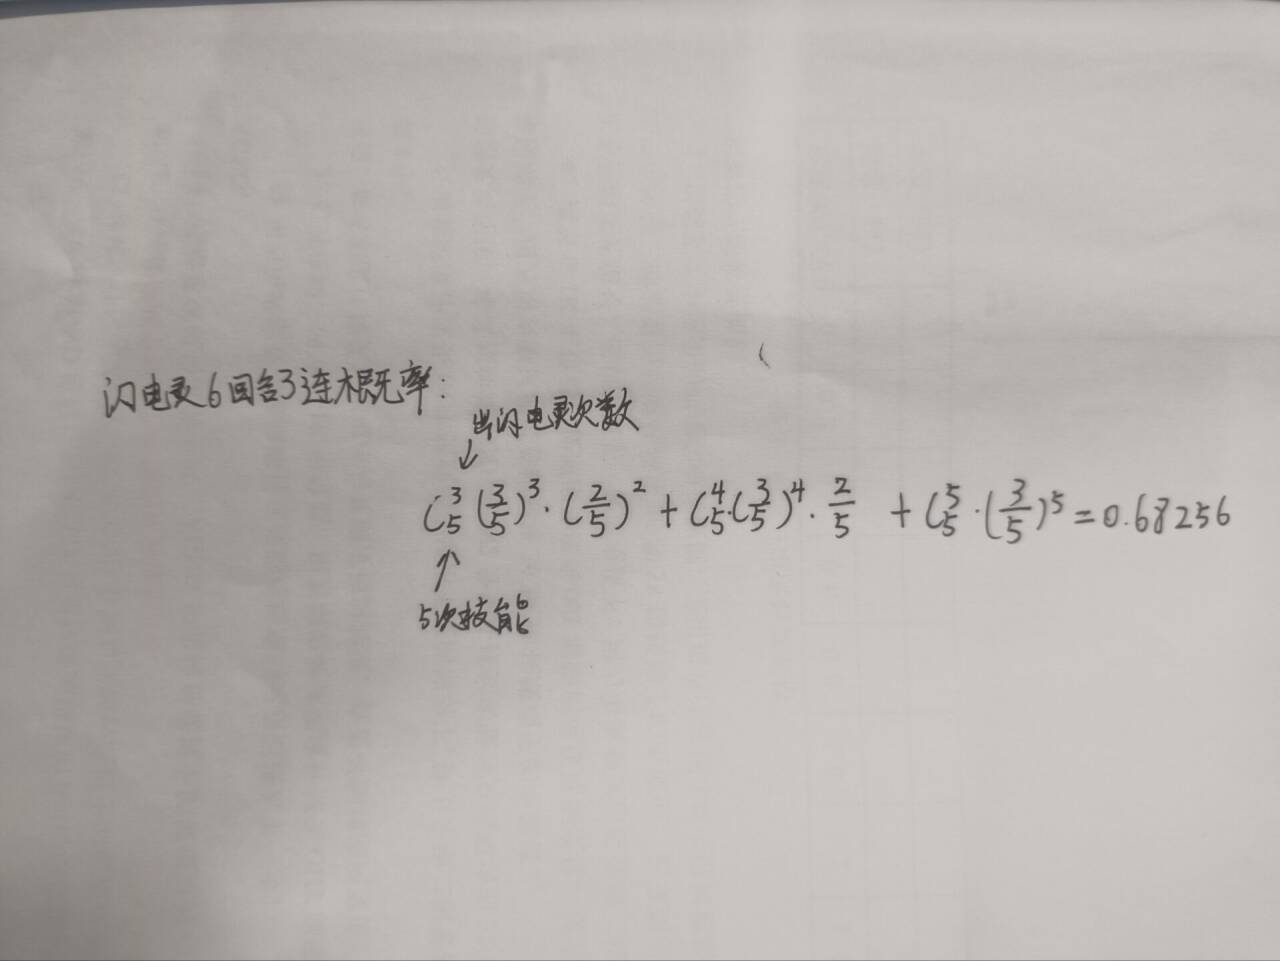 闪电灵6回合3连概率:
出闪电灵次数
C₅³(3/5)³·(2/5)²+C₅⁴·(3/5)⁴·2/5+C₅⁵·(3/5)⁵=0.68256
5次技能